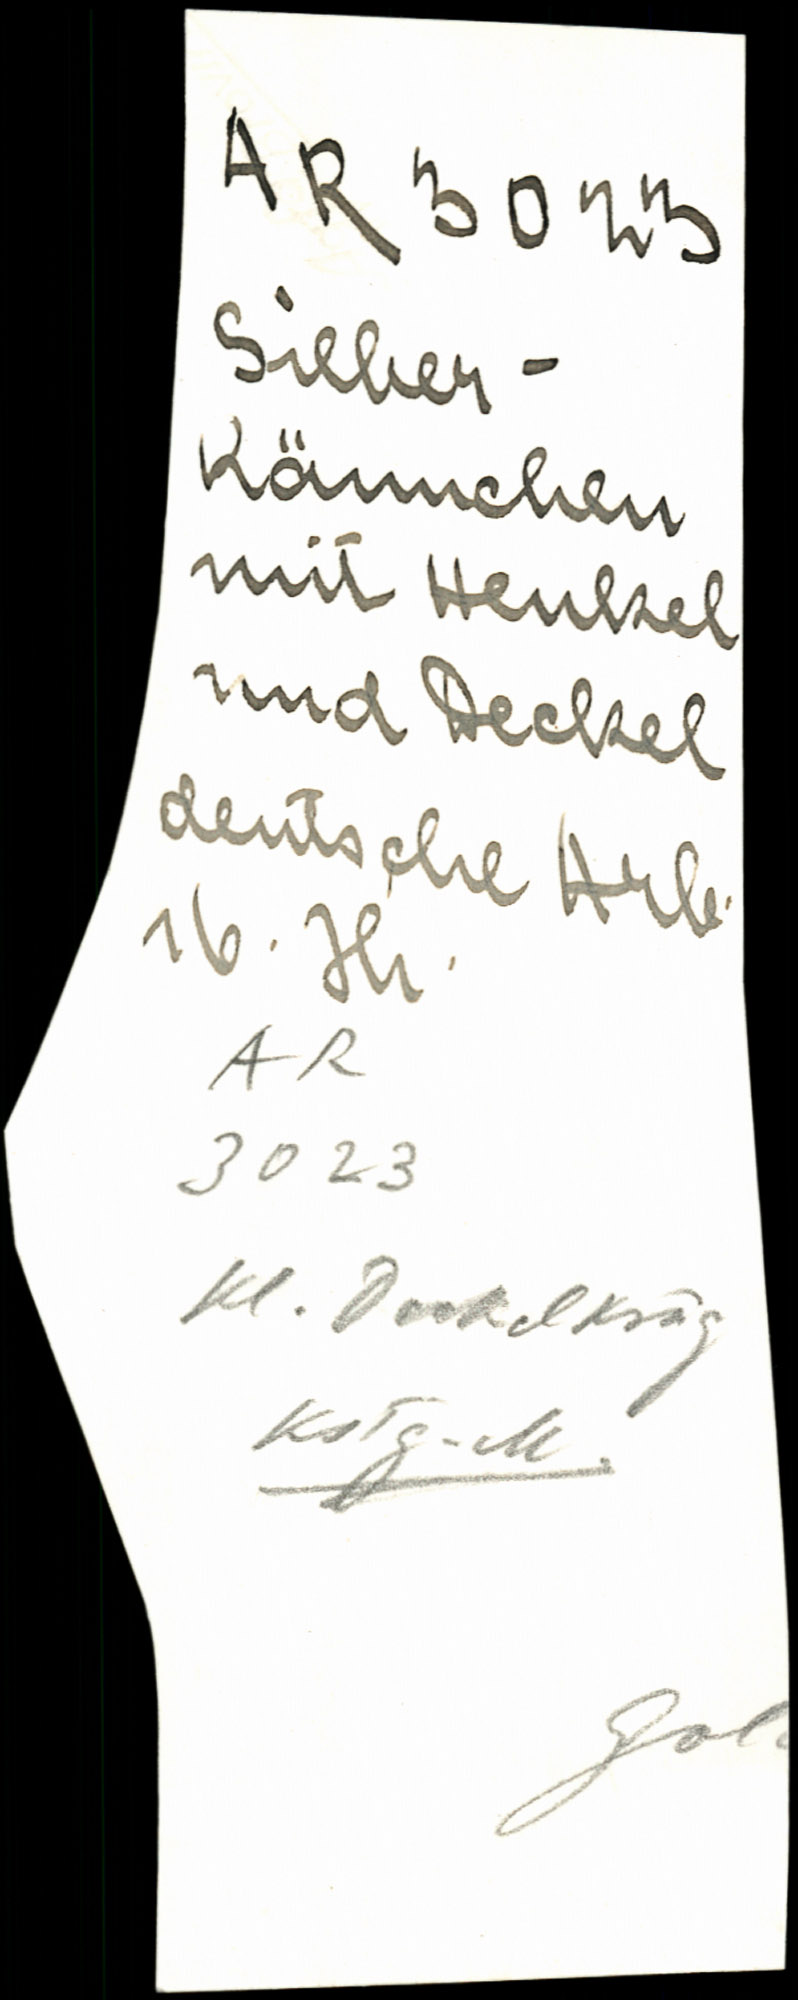 AR 3023
Silber-
Kännchen
mit Henkel
und Deckel
deutsche Arb.
16. Jhr.
AR
3023
Kl. Deckelkrug
Kstg-M.
Gol